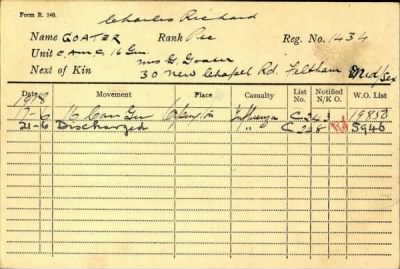 Form R. 149.
Charles Richard
Name GOATER Rank Pte Reg. No. 1434
Unit C.A.M.C. 16 Gen.
Next of Kin Mrs G. Goater
30 New Chapel Rd. Feltham Mid/sex
Date Movement Place Casualty List No. Notified N/K O. W.O. List
1918
7-6 16 Can Gen Orpington Influenza C 243 19850
21-6 Discharged " C 248 5940